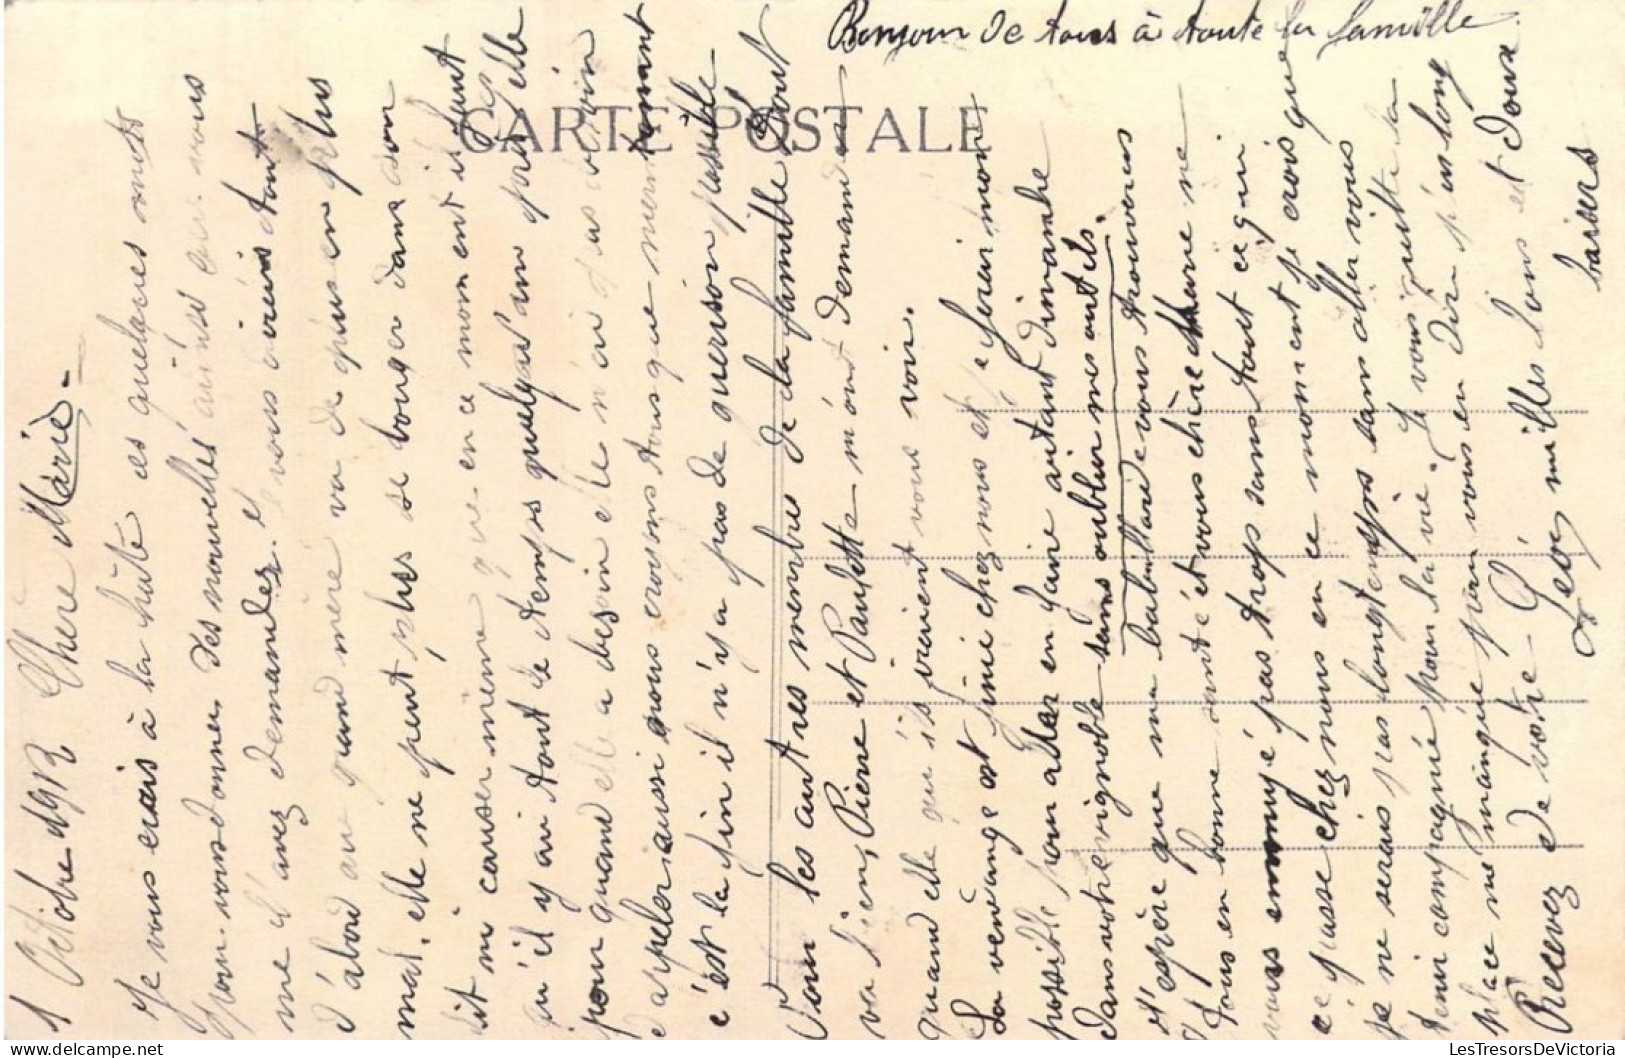 Bonjour de tous à toute la famille
CARTE POSTALE
1 Octobre 1912 Chère Marie -
Je vous écrais à la hâte ces quelques mots
pour vous donner des nouvelles ainsi que vous
me l'avez demandez. vous dirais tout
d'abord que grand mère va de plus en plus
mal, elle ne peut plus se bouger dans son
lit ni causer même que en ce moment il faut
qu'il y ai tout le temps quelqu'un près d'elle
pour quand elle a besoin elle n'ai pas besoin
d'appeler aussi nous croyons tous que
c'est la fin il n'y a pas de guerison possible
Pour les autres membres de la famille tout
va bien, Pierre et Paulette m'ont demander
quand elle qu'ils viennent vous voir.
La vendange est finie chez nous et je ferai mon
possible pour aller en faire autant dimanche
dans votre vignoble sans oublier mes outils.
J'espère que ma babillarde vous trouveras
tous en bonne santé et vous chère Marie ne
vous ennuyé pas trop sans tout ce qui
ce passe chez nous en ce moment je crois que
je ne serais pas longtemps sans aller vous
tenir compagnie pour la vie. Je vous quitte la
place me manque pour vous en dire plus long
Recevez de votre Léon milles bons et doux
baisers
Léon
LesTresorsDeVictoria